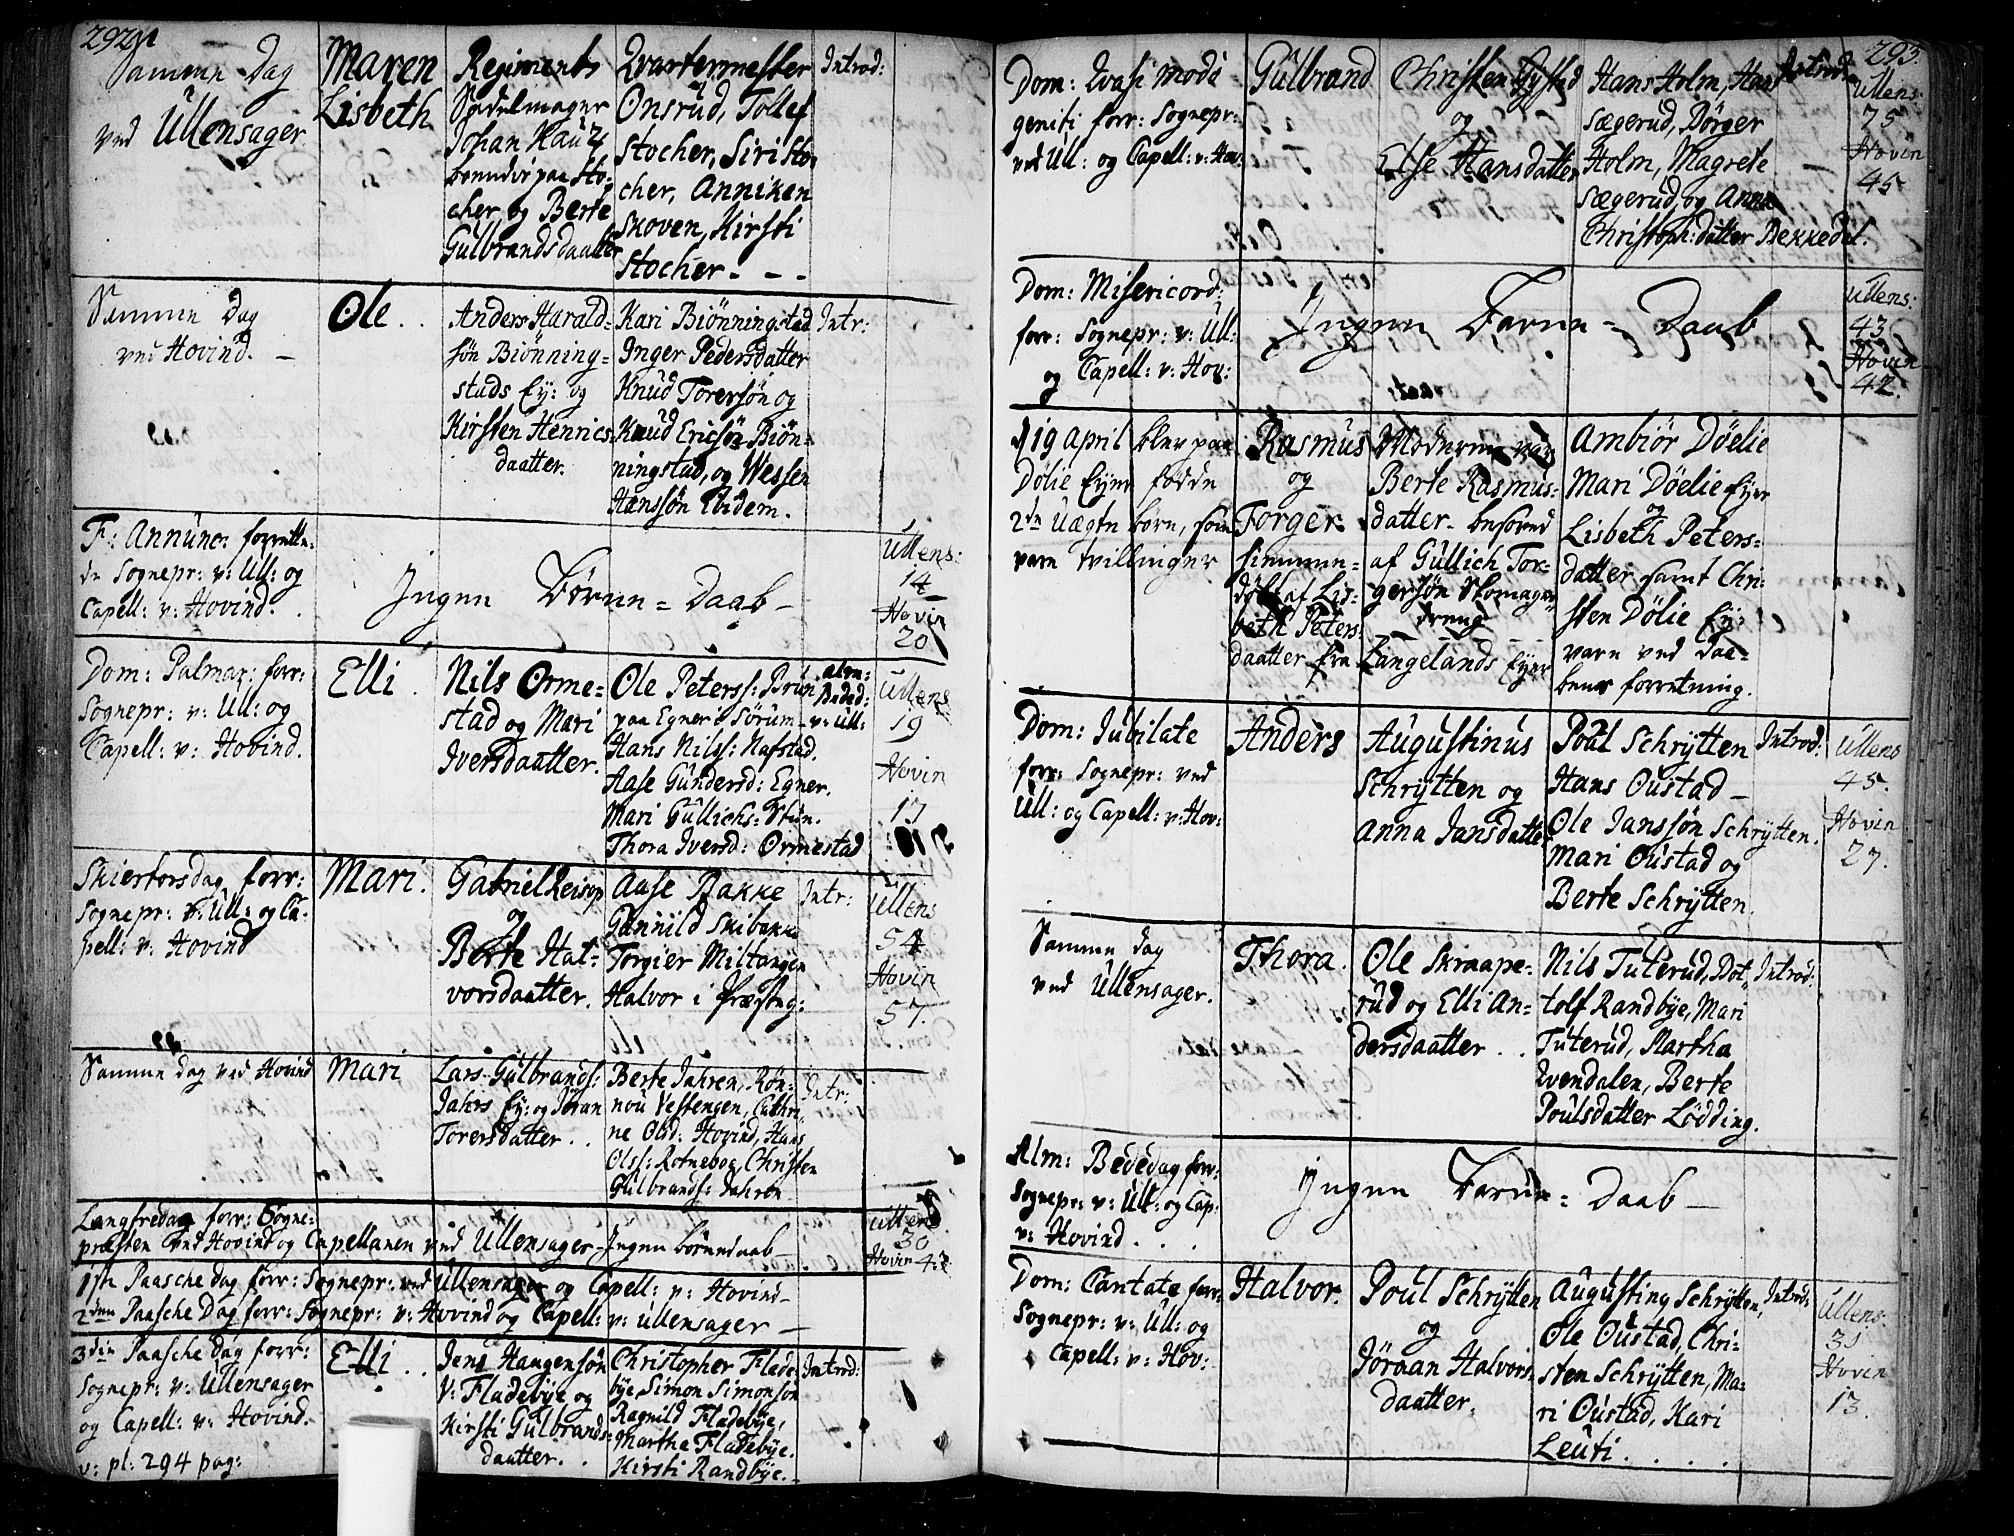 292
Samme Dag
ved Ullensager
Maren
Lisbeth
Regiments
Sadelmager
Johan Hautz
boende paa Sto-
cher, og Berte
Gulbrandsdaatter
Qvartermester
Onsrud, Tollef
Stocher, Siri Sto-
cher, Anniken
Skoven, Kirsti
Stocher - - -
Introd:
Samme Dag
ved Hovind. -
Ole . .
Anders Harald-
søn Biønning=
stads Ey: og
Kirsten Henrics-
daatter.
Kari Biønningstad
Inger Pedersdatter
Knud Torersøn og
Knud Ericsøn Biøn-
ningstad, og Wessen
Hanssøn Ibidem.
Intr:
F: Annunc: forrette-
de Sognepr: v: Ull: og
Capell: v: Hovind. .
Ingen Børne = Daab -
Ullens:
14
Hovin
20
Dom: Palmar: forr:
Sognepr: v: Ull: og
Capell: v: Hovind.
Elli .
Nils Orme-
stad og Mari
Iversdaatter.
Ole Peterss: Brun
paa Egner i Sørum-
Hans Nilss: Nafstad.
Aase Gundersd: Egner.
Mari Gullichs: Stun.
Thora Iversd: Ormestad
v: Ull:
Ullens
19
Hovin
17
Skiertorsdag forr:
Sognepr: v: Ull: og Ca-
pell: v: Hovind
Mari.
Gabriel Leirop
og
Berte Hal-
vorsdaatter.
Aase Bakke
Gunnild Skibakke
Torgier Miltangen
Halvor i Præsteg:
Intr:
Ullens
54
Hovin
57.
Samme dag ved Hovind
Mari
Lars Gulbrands:
Jahrs Ey: og Joran
Torersdatter . .
Berte Jahren, Røn-
nou Vestengen, Cathri-
ne Olsd: Hovind, Hans
Olss: Rotneboe, Christen
Gulbrands: Jahren
Intr:
Langfredag forr: Sogne-
præsten ved Hovind og Capellanen ved Ullensager - Ingen børnedaab -
Ullens
30
Hovin 43
1ste Paasche dag forr: Sognepr: ved Ullensager og Capell: v: Hovind -
2den Paasche Dag forr: Sognepr: v: Hovind og Capell: v: Ullensager -
3die Paasche Dag forr:
Sognepr: v: Ullensager
og Capell: v: Hovind.
v: pl: 294 pag:
Elli . .
Jens Haagensøn
v: Fladebye og
Kirsti Gulbrands-
daatter. .
Christopher Flade-
bye, Simon Simonsøn
Ragnild Fladebye,
Martha Fladebye.
Kirsti Randbye. -
Introd:
293.
Dom: Qvasi modo
geniti forr: Sognepr:
ved Ull: og Capell: v: Hov:
Gulbrand
Christen Gystad
og
Else Hansdatter
Hans Holm, Hans
Sægerud, Børger
Holm, Magrete
Sægerud, og Anna
Christoph: datter Bekkedal.
Introd:
Ullens:
75
Hovin
45
Dom: Misericord:
forr: Sognepr: v: Ull:
og Capell: v: Hov:
Ingen Børne = Daab
Ullens:
43
Hovin
42.
d 19 April blev paa
Dølie Eyer fødde
2de Uægte børn, som
vare tvillinger
Rasmus
og
Torger
hiemme-
døbt af Lis-
beth Peters-
daatter fra
Moderen var
Berte Rasmus-
datter besoved
af Gullich Tor-
gersøn Skomager
dreng
Langelands Eyer
Ambiør Døelie
Mari Døelie Eyer
og
Lisbeth Peters-
datter samt Chri-
sten Dølie Ey:
vare ved Daa-
bens forretning.
Dom: Jubilate
forr: Sognepr: ved
Ull: og Capell: v: Hov:
Anders
Augustinus
Schrytten og
Anna Jansdatter
Poul Schrytten
Hans Oustad -
Ole Janssøn Schrytten.
Mari Oustad og
Berte Schrytten.
Introd:
Ullens
45.
Hovin
27.
Samme dag
ved Ullensager.
Thora.
Ole Skraape-
rud og Elli An-
dersdaatter . .
Nils Tuterud, Bot-
tolf Randbye, Mari
Tuterud, Martha
Qvendalen, Berte
Poulsdatter Lødding.
Introd:
Alm: Bededag forr:
Sognepr: v: Ull: og Cap:
v: Hovind . . .
Ingen Børne = Daab -
Dom: Cantate forr:
Sognepr: v: Ull: og
Capell: v: Hov:
Halvor.
Poul Schrytten
og
Jøraan Halvors-
daatter.
Augusting Schrytten,
Ole Oustad, Chri-
sten Schrytten, Ma-
ri Oustad, Kari
Leuti . . . .
Introd:
Ullens:
31
Hovin
13.